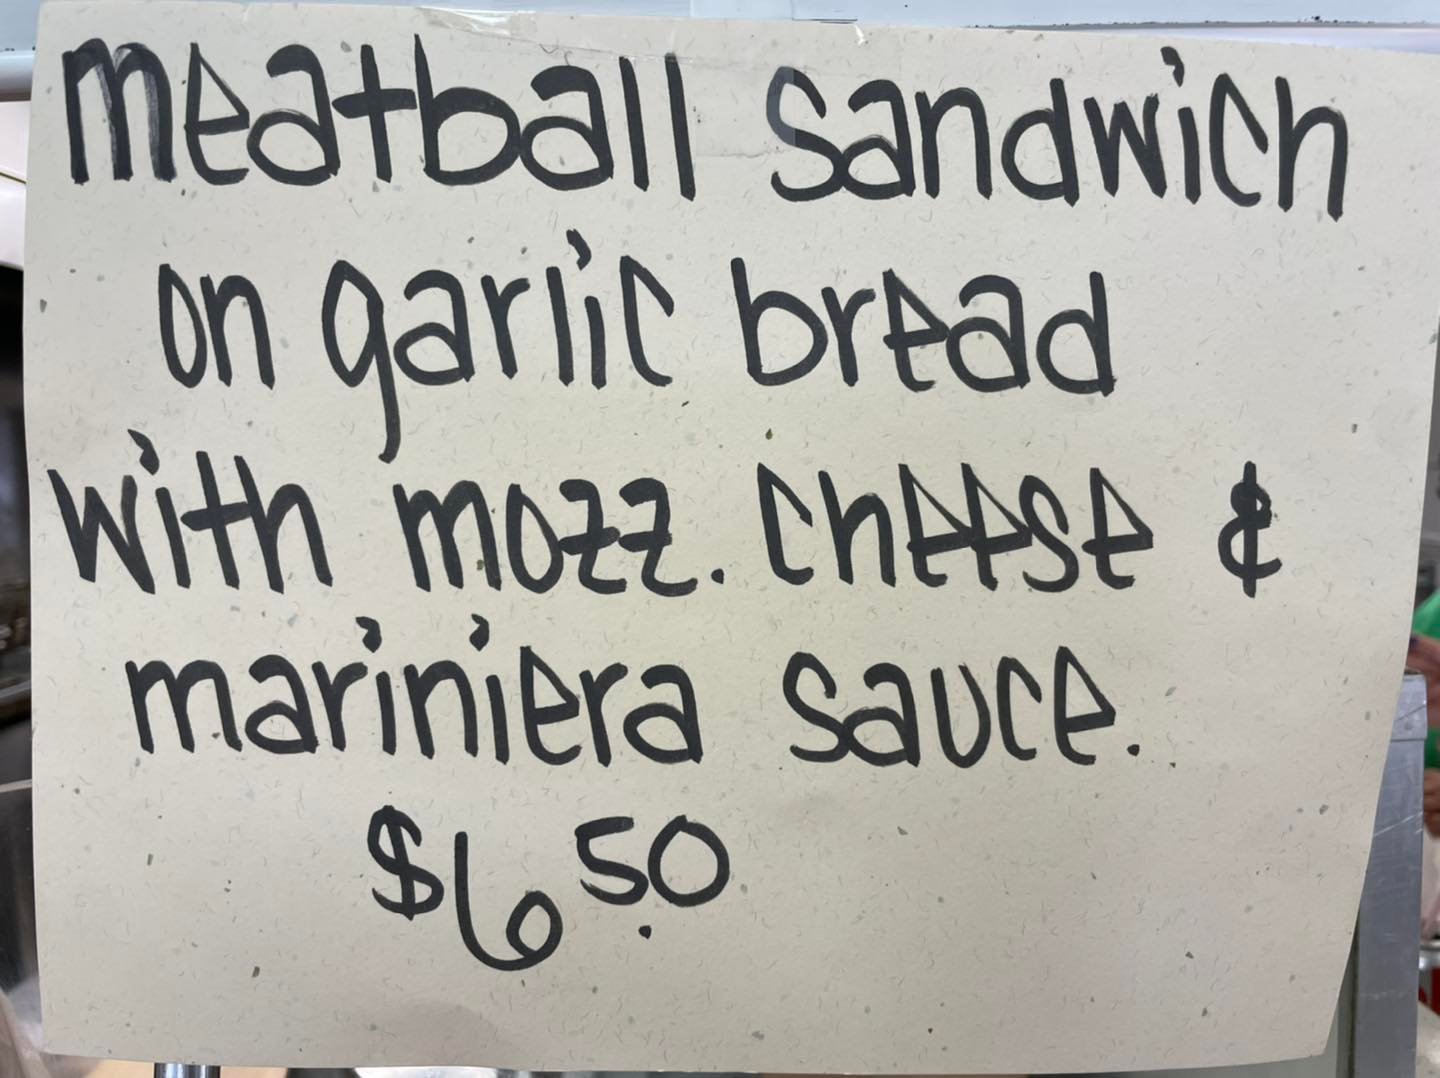 meatball sandwich
on garlic bread
with mozz. cheese &
mariniera sauce.
$6 50